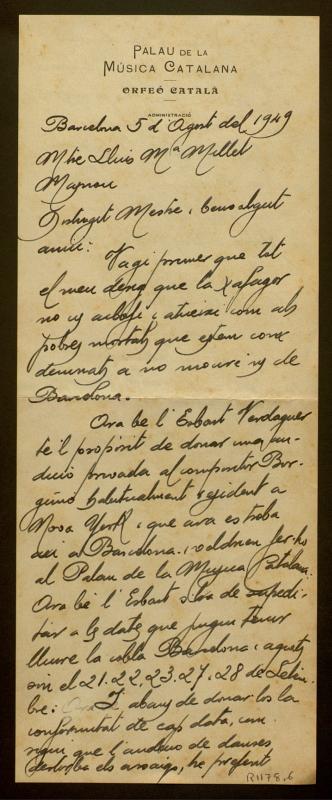 PALAU DE LA
MÚSICA CATALANA
ORFEÓ CATALÀ
ADMINISTRACIÓ
Barcelona 5 d'Agost del 1949
Mtre Lluis Mª Millet
Masnou
Distingit Mestre i benvolgut
amic: Vagi primer que tot
el meu desig que la xafagor
no us aclofi i atueixi com als
pobres mortals que estem con
demnats a no moure'ns de
Barcelona.
Ora bé l'Esbart Verdaguer
té'l propòsit de donar una au-
dició privada al compositor
habitualment resident a
Nova York i que ara es troba
aci a Barcelona. i voldrien fer-ho
al Palau de la Musica Catalana.
Ora bé l'Esbart s'ha de supedi-
tar a les dates que pugui tenir
lliure la cobla Barcelona i aquests
son el 21. 22, 23, 27 i 28 de Setem-
bre: abans de donar-los la
conformitat de cap data, com
sigui que l'audició de danses
destorba els assaigs, he preferit
R1178,6